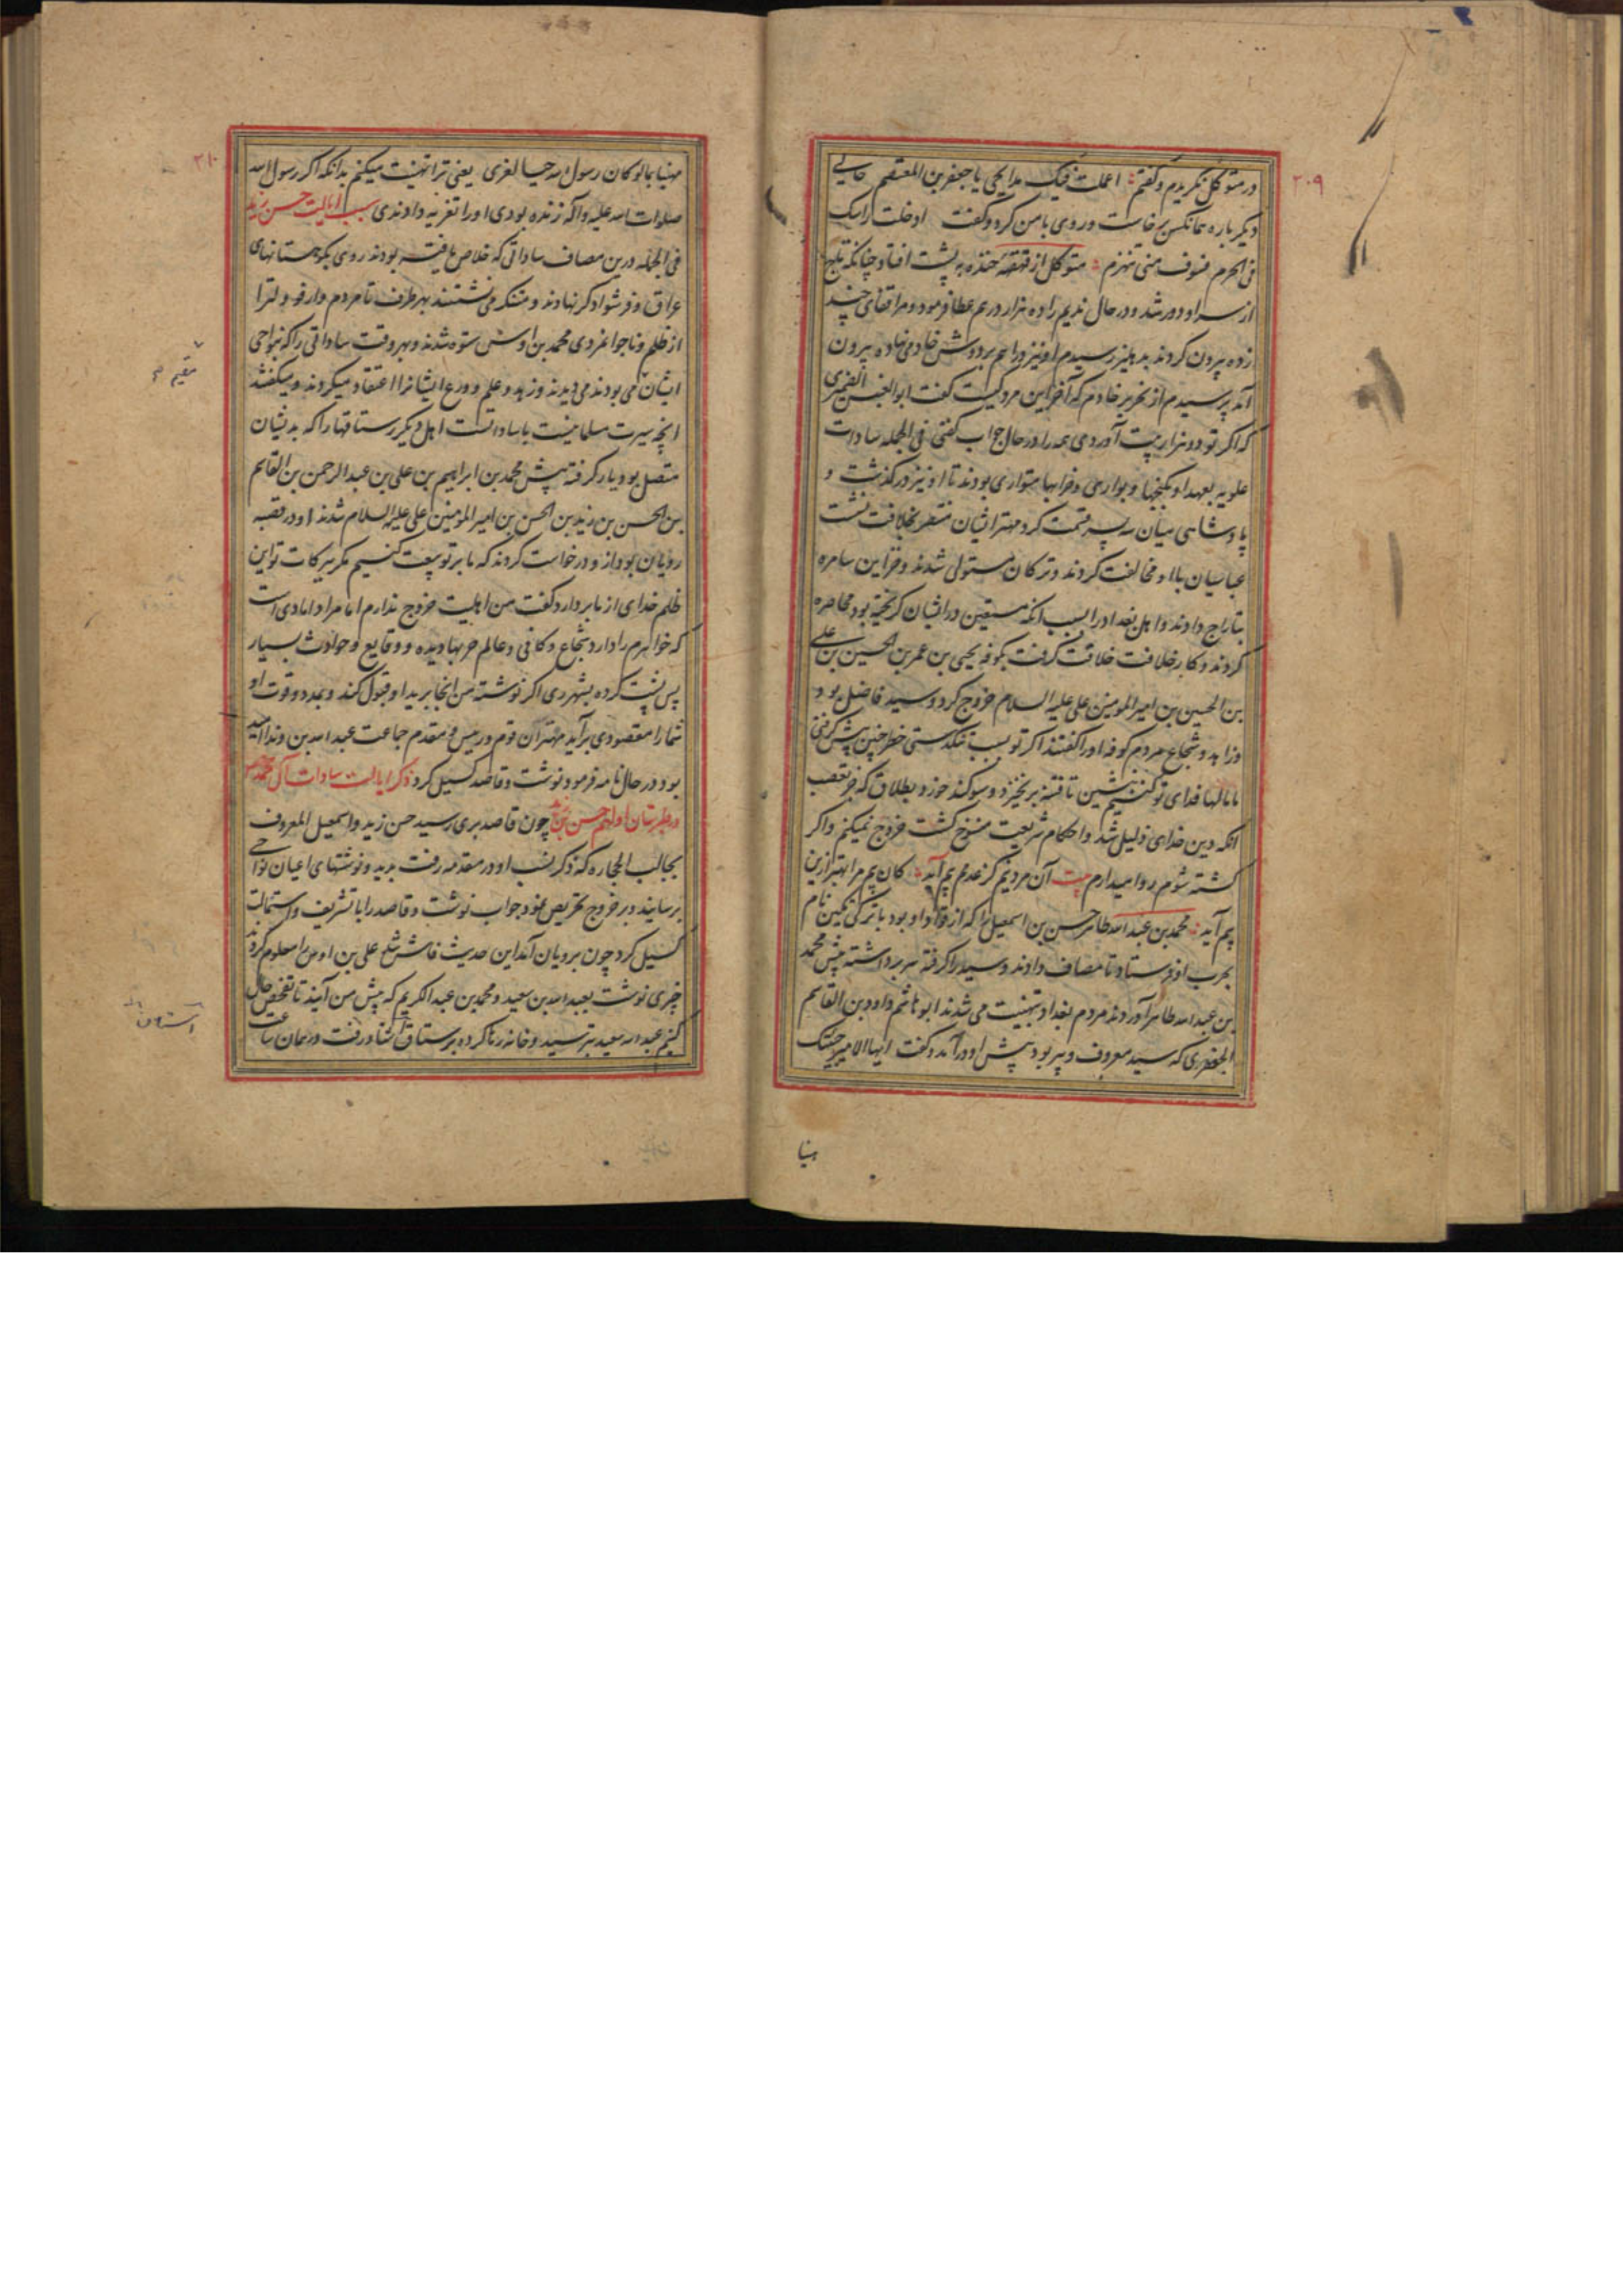 ۲۰۹
در متوکل نگریدم و گفتم اعملت فیک مدایحی یا جعفر بن المعتصم
دیگر باره همانکس برخاست و روی با من کرد و گفت ادخلت راسک
فی الحرم فسوف منی تنهزم متوکل از قهقهه خنده به پشت افتاد چنانکه
از سر او دور شد و در حال ندیم را ده هزار درهم عطا فرمود و مرا قفای چند
زده بیرون کردند بدهلیز رسیدم او نیز درآمد بر دوش خادمی نهاده بیرون
آمد پرسیدم از خادم که آخر این مرد کیست گفت ابوالعنبس الضمیری
که اگر تو دو هزار بیت آوردی همه را در حال جواب گفتی فی الجمله سادات
علویه بعهد او بکنجها و بواری و خرابها متواری بودند تا او نیز درگذشت و
پادشاهی میان سه پسر قسمت کرد مهتر ایشان منتصر بخلافت نشست
عباسیان با او مخالفت کردند و ترکان مستولی شدند و خزاین سامره
بتاراج دادند و اهل بغداد را بسبب آنکه مستعین در ایشان گریخته بود محاصره
کردند و کار خلافت خلاقت گرفت بکوفه یحیی بن عمر بن الحسین بن علی
بن الحسین بن امیر المومنین علی علیه السلام خروج کرد و سید فاضل بود
و زاهد و شجاع مردم کوفه او را گفتند اگر تو بسبب تنگدستی خطر چنین پیش گرفتی
ما مالها فدای تو کنیم بنشین تا فتنه برنخیزد و سوگند خورد بطلاق که جز تعصب
آنکه دین خدای ذلیل شد و احکام شریعت منسوخ گشت خروج نمیکنم و اگر
کشته شوم روا میدارم بیت آن مرد نیم کز عدمم بیم آید کان بیم مرا بهتر ازین
بیم آید محمد بن عبدالله طاهر حسن بن اسمعیل را که از قواد او بود با ترکی تکین نام
بحرب او فرستاد تا مصاف دادند و سید را گرفته سر برداشته پیش محمد
بن عبدالله طاهر آوردند مردم بغداد بتهنیت می شدند ابو هاشم داود بن القاسم
الجعفری که سید معروف و پیر بود پیش او درآمد و گفت ایها الامیر جئتک
۲۱۰
مهنیا بما لو کان رسول الله حیا لعزی یعنی ترا تهنیت میکنم بدانکه اگر رسول الله
صلوات الله علیه و آله زنده بودی او را تعزیه دادندی سبب ایالت حسن زید
فی الجمله درین مصاف ساداتی که خلاص یافته بودند روی بکوهستانهای
عراق و فرشوادگر نهادند و متنکر می نشستند بهر طرف تا مردم دارفو و لترا
از ظلم و ناجوانمردی محمد بن اوش ستوه شدند و بهر وقت ساداتی را که بنواحی
ایشان می بودند می دیدند و زهد و علم و ورع ایشانرا اعتقاد میکردند و میگفتند
آنچه سیرت مسلمانیست با سادات است اهل دیگر رستاقها را که بدیشان
متصل بود یار گرفته پیش محمد بن ابراهیم بن علی بن عبدالرحمن بن القاسم
بن الحسن بن زید بن الحسن بن امیر المومنین علی علیه السلام شدند او در قصبه
رویان بود از و درخواست کردند که ما بر تو بیعت کنیم مگر ببرکات تو این
ظلم خدای از ما بردارد گفت من اهلیت خروج ندارم اما مرا دامادی است
که خواهرم را دارد شجاع و کافی و عالم حربها دیده و وقایع و حوادث بسیار
پس پشت کرده بشهر ری اگر نوشته من آنجا برید او قبول کند و بمدد و قوت او
شما را مقصودی برآید مهتر آن قوم و رییس و مقدم جماعت عبدالله بن وندا امید
بود در حال نامه فرمود نوشت و قاصد گسیل کرد ذکر ایالت سادات آل محمد
در طبرستان اولهم حسن بن زید چون قاصد بری رسید حسن زید و اسمعیل المعروف
بجالب الحجاره که ذکر نسب او در مقدمه رفت بدید و نوشتهای اعیان نواحی
برسانید و بر خروج تحریص نمود جواب نوشت و قاصد را با تشریف و استمالت
گسیل کرد چون برویان آمد این حدیث فاش شد علی بن اوس را معلوم کردند
چیزی نوشت بعبدالله بن سعید و محمد بن عبدالکریم که پیش من آیند تا تفحص حال
کنیم عبدالله سعید بترسید و خانه رها کرده برستاق استاد رفت در همان ساعت
مقیم
استاق
مهنیا